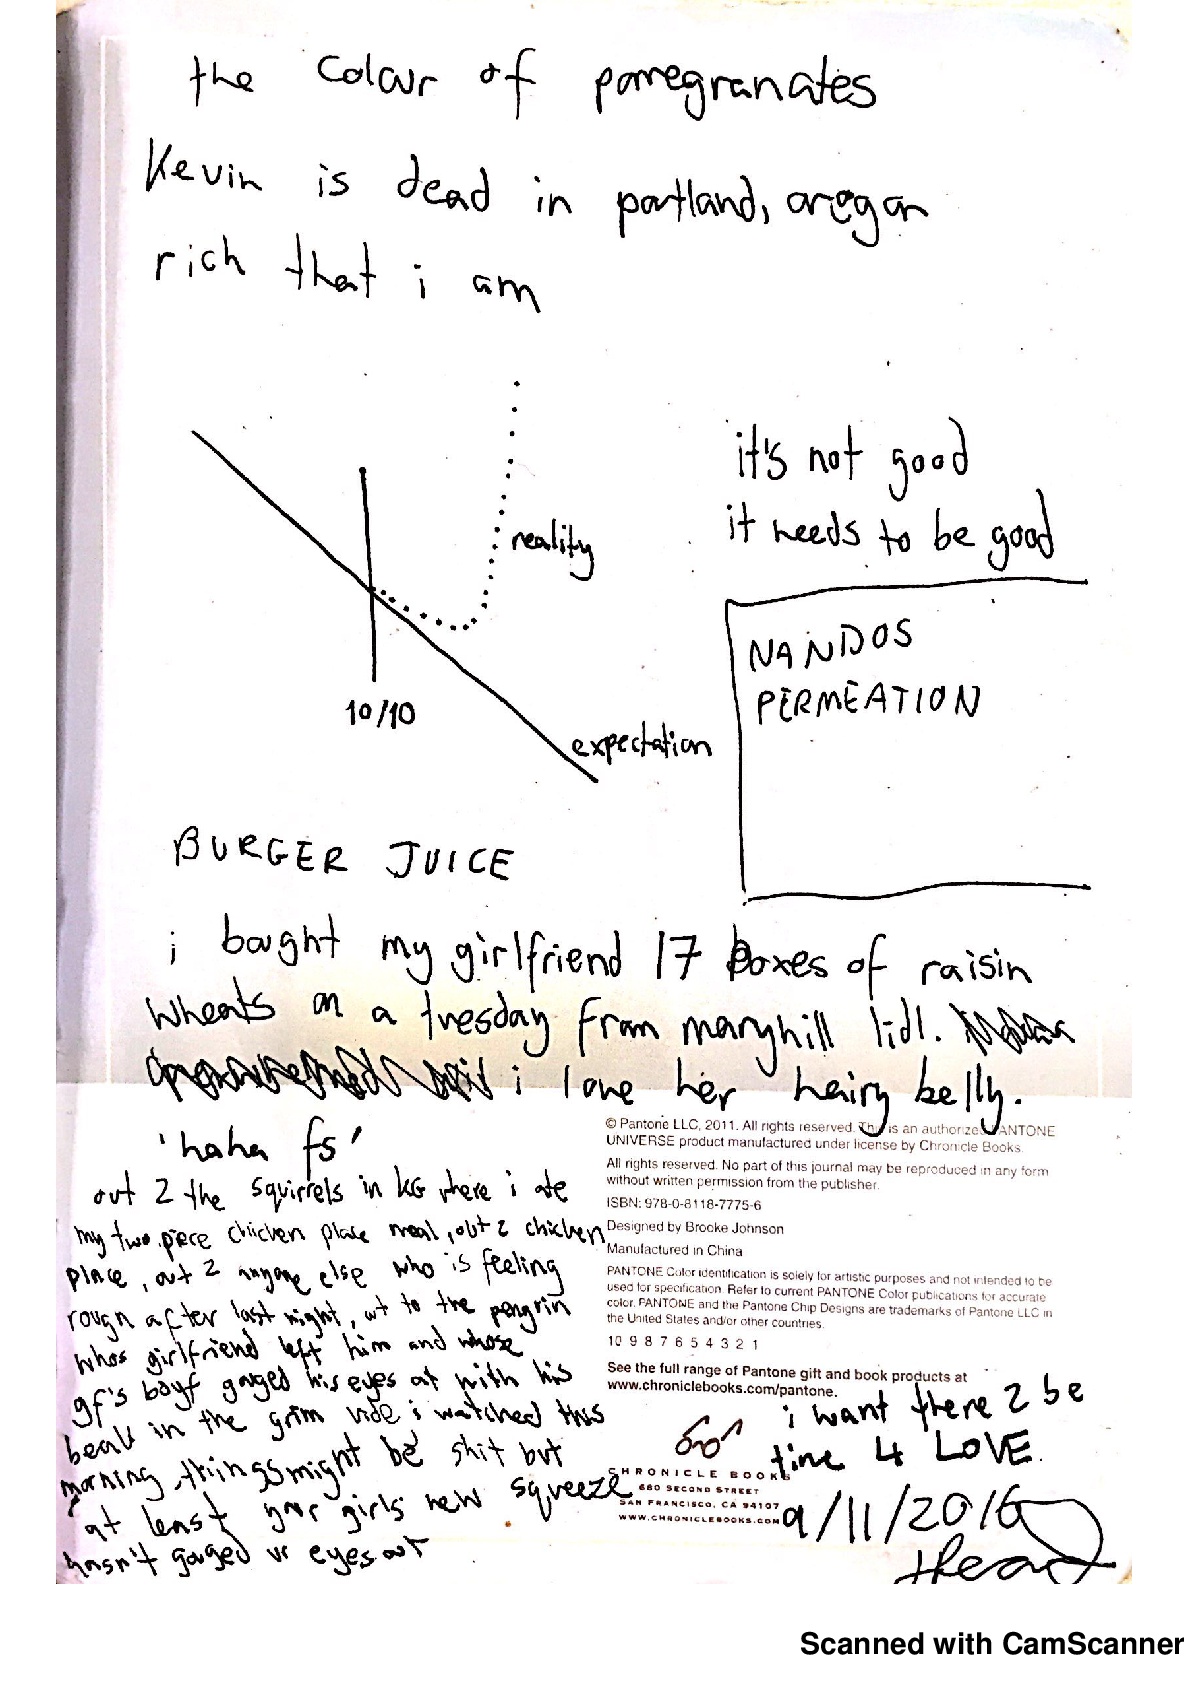 the colour of pomegranates
Kevin is dead in portland, oregon
rich that i am
reality
10/10
expectation
it's not good
it needs to be good
NANDOS
PERMEATION
BURGER JUICE
i bought my girlfriend 17 boxes of raisin
wheats on a tuesday from maryhill lidl.
i love her hairy belly.
'haha fs'
out 2 the squirrels in KG where i ate
my two piece chicken place meal, out 2 chicken
place, out 2 anyone else who is feeling
rough after last night, out to the pengrin
whos girlfriend left him and whose
gf's boyf gouged his eyes out with his
beak in the grim vide i watched this
morning, things might be shit but
at least your girls new squeeze
hasn't gouged ur eyes out
© Pantone LLC, 2011. All rights reserved. This is an authorized PANTONE
UNIVERSE product manufactured under license by Chronicle Books.
All rights reserved. No part of this journal may be reproduced in any form
without written permission from the publisher.
ISBN: 978-0-8118-7775-6
Designed by Brooke Johnson
Manufactured in China
PANTONE Color identification is solely for artistic purposes and not intended to be
used for specification. Refer to current PANTONE Color publications for accurate
color. PANTONE and the Pantone Chip Designs are trademarks of Pantone LLC in
the United States and/or other countries.
10 9 8 7 6 5 4 3 2 1
See the full range of Pantone gift and book products at
www.chroniclebooks.com/pantone.
i want there 2 be
time 4 LOVE.
CHRONICLE BOOKS
680 SECOND STREET
SAN FRANCISCO, CA 94107
WWW.CHRONICLEBOOKS.COM
9/11/2016
Scanned with CamScanner